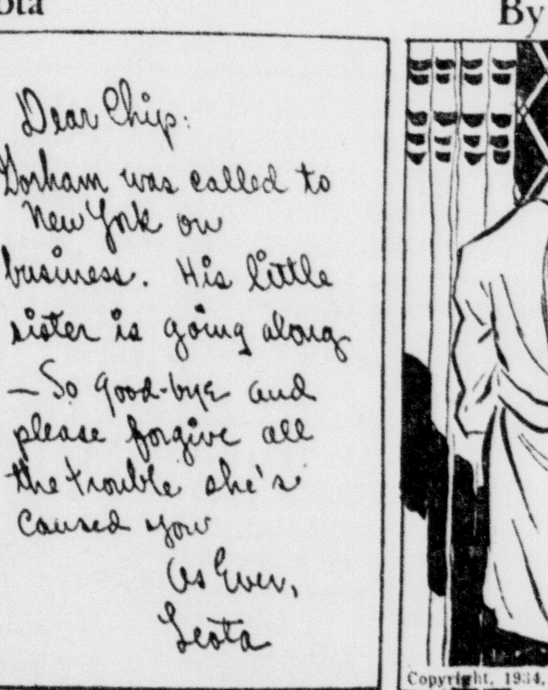 ota
By
Dear Chip:
Dorham was called to
New York on
business. His little
sister is going along
— So good-bye and
please forgive all
the trouble she's
caused you
As Ever,
Leota
Copyright, 1934,